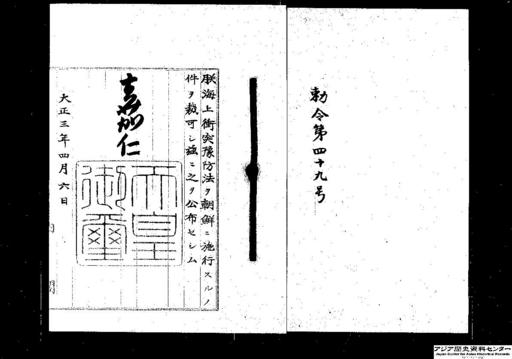 勅令第四十九号
朕海上衝突豫防法ヲ朝鮮ニ施行スルノ
件ヲ裁可シ茲ニ之ヲ公布セシム
嘉仁
天皇
御璽
大正三年四月六日
アジア歴史資料センター
Japan Center for Asian Historical Records